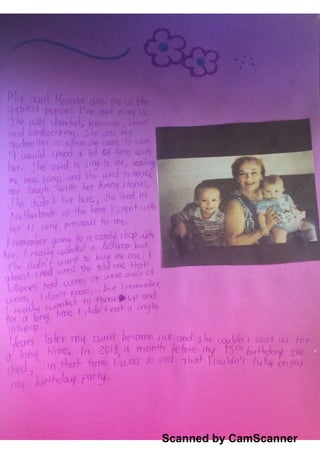 My aunt was one of the
greatest persons I've met in my life.
She was cheerful, funny, brave
and hardworking. She was my
godmother so when she came to visit
I would spend a lot of time with
her. She used to sing to me, teaching
me new songs and she used to make
me laugh with her funny stories,
She didn't live here, she lived in
Netherlands so the time I spent with
her is very precious to me.
I remember going to a candy shop with
her, I really wanted a lollipop but
she didn't want to buy me one, I
almost cried until she told me that
lollipops had worms or were made of
worms, I don't know... but I remember
I really wanted to throw up and
for a long time I didn't eat a single
lollipop.
Years later my aunt became sick and she couldn't visit us for
a long time, In 2013, a month before my 15th birthday she
died, in that time I was so sad that I couldn't fully enjoy
my birthday party.
Scanned by CamScanner